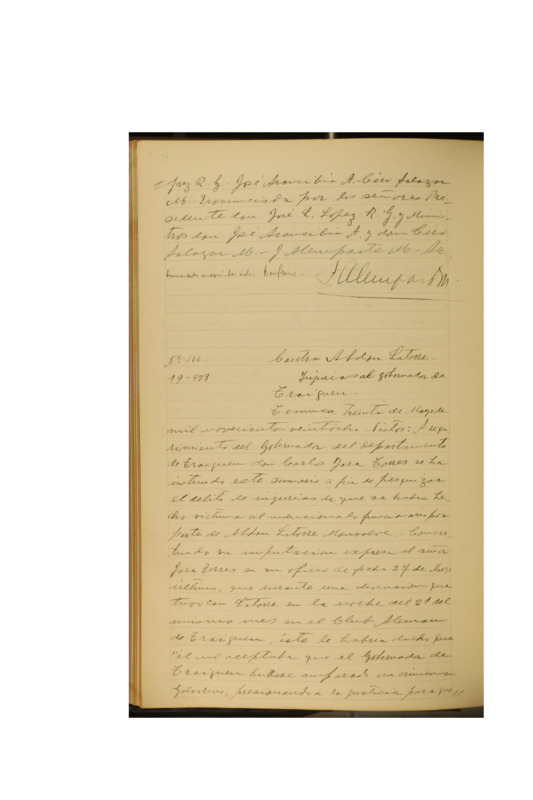 pez R. G. - José Aravcibia A. - Ciro Salazar
M. - Pronunciada por los señores Pre-
sidente don José L. Lopez R. G. y Minis-
tros don José Aravcibia A. y don Ciro
Salazar M. - J Alemparte M. - Se
J Alempar
Nº
19-928
Contra Abdon Latorre.
Injurias al gobernador de
Traiguen.
Temuco, Treinta de Mayo de
mil novecientos veintiocho. Vistos: A reque-
rimiento del Gobernador del departamento
de Traiguen don Carlos Jara Torres se ha
instruido este sumario a fin de pesquizar
el delito de injurias de que se habria he-
cho victima al mencionado funcionario por
parte de Abdon Latorre. Concre-
tando su imputacion expresa el señor
Jara Torres en su oficio de fecha 27 de
ultimo, que durante una discusion que
tuvo con Latorre en la noche del 21 del
mismo mes en el Club Aleman
de Traiguen, éste le habria dicho que
"él no aceptaba que el Gobernador de
Traiguen hubiese amparado un crimen en
Galvarino, presionando a la justicia para que